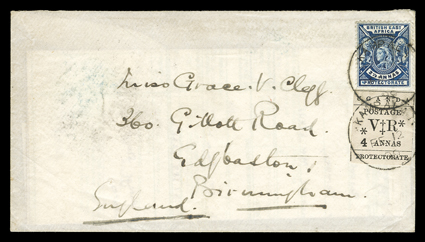 BRITISH EAST
AFRICA
PROTECTORATE
POSTAGE
V R
4 ANNAS
PROTECTORATE
Miss Grace. V. Clegg.
360. Gillott Road.
Edgbaston.
Birmingham.
England.